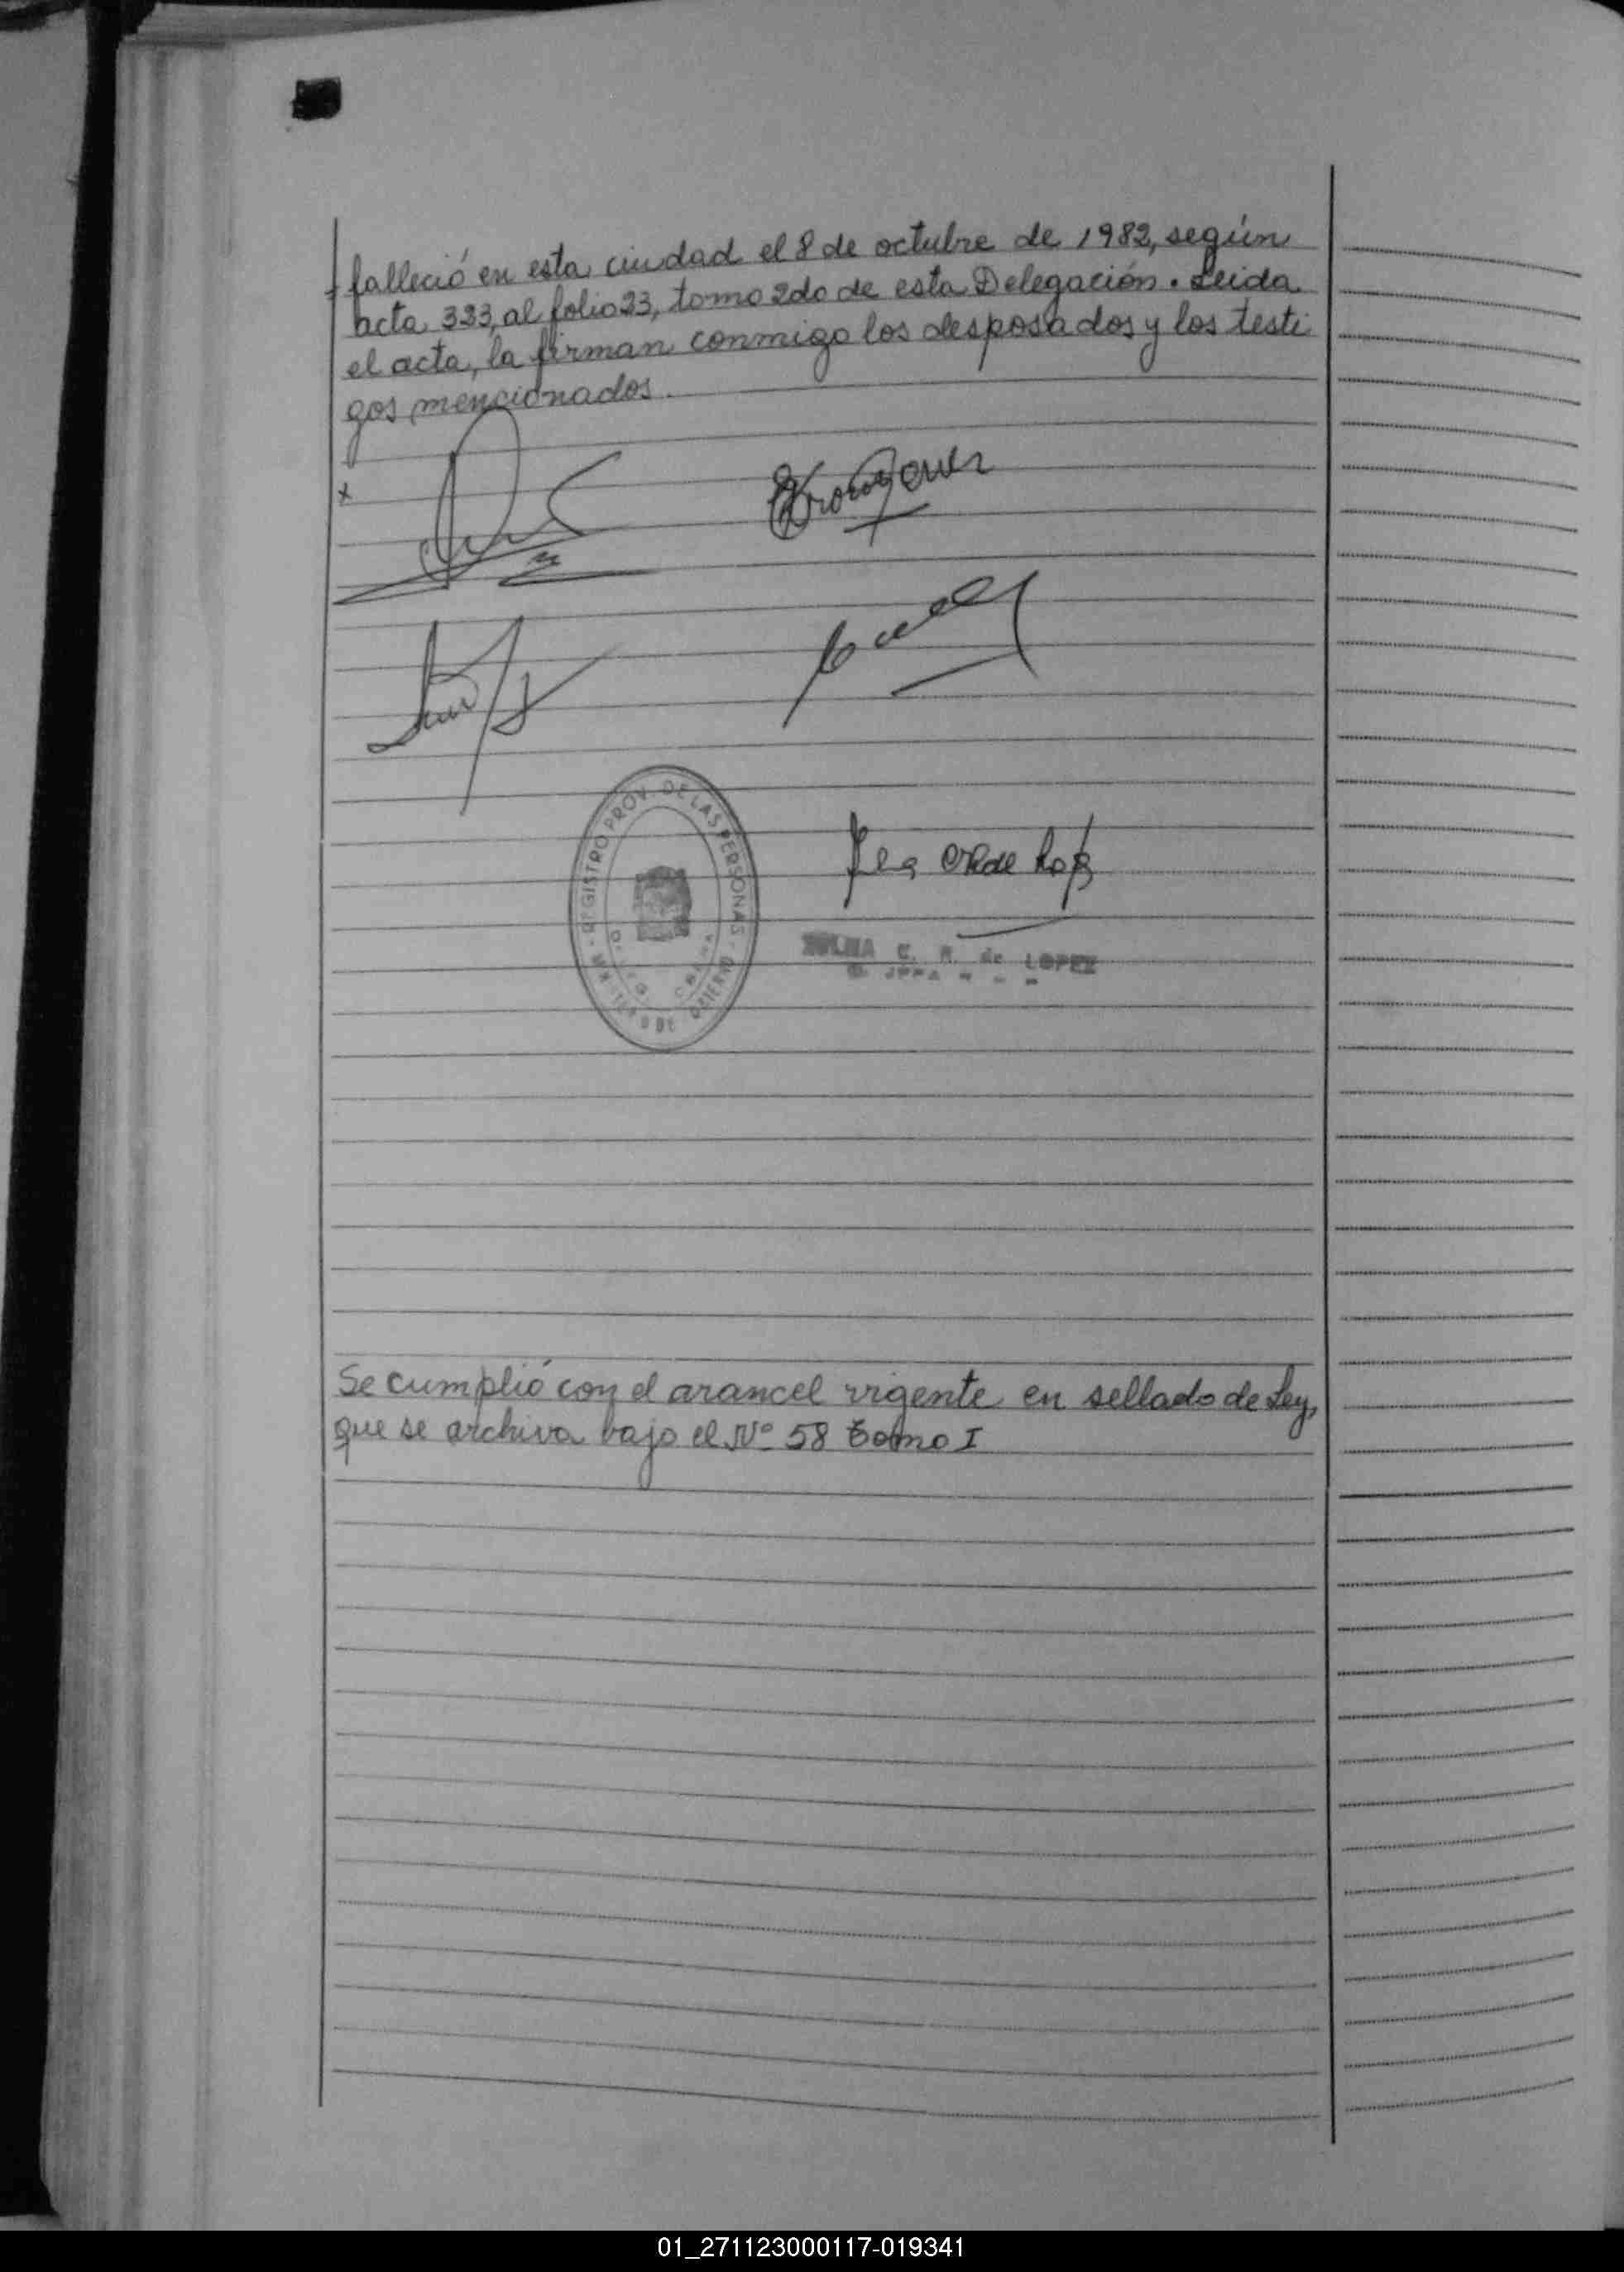 falleció en esta ciudad el 8 de octubre de 1982, según
acta 333, al folio 23, tomo 2do de esta Delegación. Leida
el acta, la firman conmigo los desposados y los testi
gos mencionados.
x
REGISTRO PROV. DE LAS PERSONAS
C. R. de LOPEZ
Se cumplió con el arancel vigente en sellado de Ley,
que se archiva bajo el Nº 58 Tomo I
01_271123000117-019341